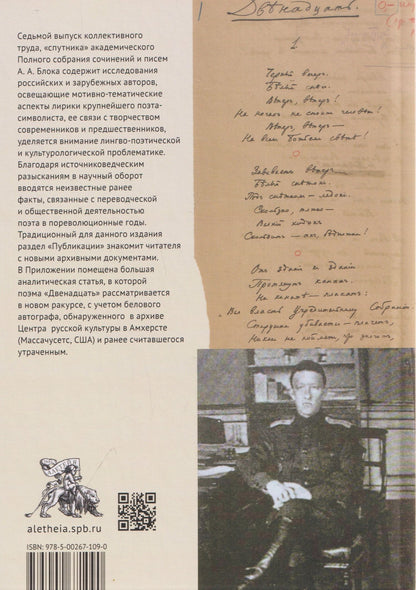 Седьмой выпуск коллективного
труда, «спутника» академического
Полного собрания сочинений и писем
А. А. Блока содержит исследования
российских и зарубежных авторов,
освещающие мотивно-тематические
аспекты лирики крупнейшего поэта-
символиста, ее связи с творчеством
современников и предшественников,
уделяется внимание лингво-поэтической
и культурологической проблематике.
Благодаря источниковедческим
разысканиям в научный оборот
вводятся неизвестные ранее
факты, связанные с переводческой
и общественной деятельностью
поэта в революционные годы.
Традиционный для данного издания
раздел «Публикации» знакомит читателя
с новыми архивными документами.
В Приложении помещена большая
аналитическая статья, в которой
поэма «Двенадцать» рассматривается
в новом ракурсе, с учетом белового
автографа, обнаруженного в архиве
Центра русской культуры в Амхерсте
(Массачусетс, США) и ранее считавшегося
утраченным.
aletheia.spb.ru
ISBN 978-5-00267-109-0
Двѣнадцать.
1
Черный вечеръ.
Бѣлый снѣгъ.
Вѣтеръ, вѣтеръ!
На ногахъ не стоитъ человѣкъ!
Вѣтеръ, вѣтеръ —
На всемъ Божьемъ свѣтѣ!
Завиваетъ вѣтеръ
Бѣлый снѣжокъ.
Подъ снѣжкомъ — ледокъ.
Скользко, тяжко —
Всякій ходокъ
Скользитъ — ахъ, бѣдняжка!
Отъ зданія къ зданію
Протянутъ канатъ.
На канатѣ — плакатъ:
Вся власть Учредительному Собранію
Старушка убивается — плачетъ,
Никакъ не пойметъ, что значитъ,